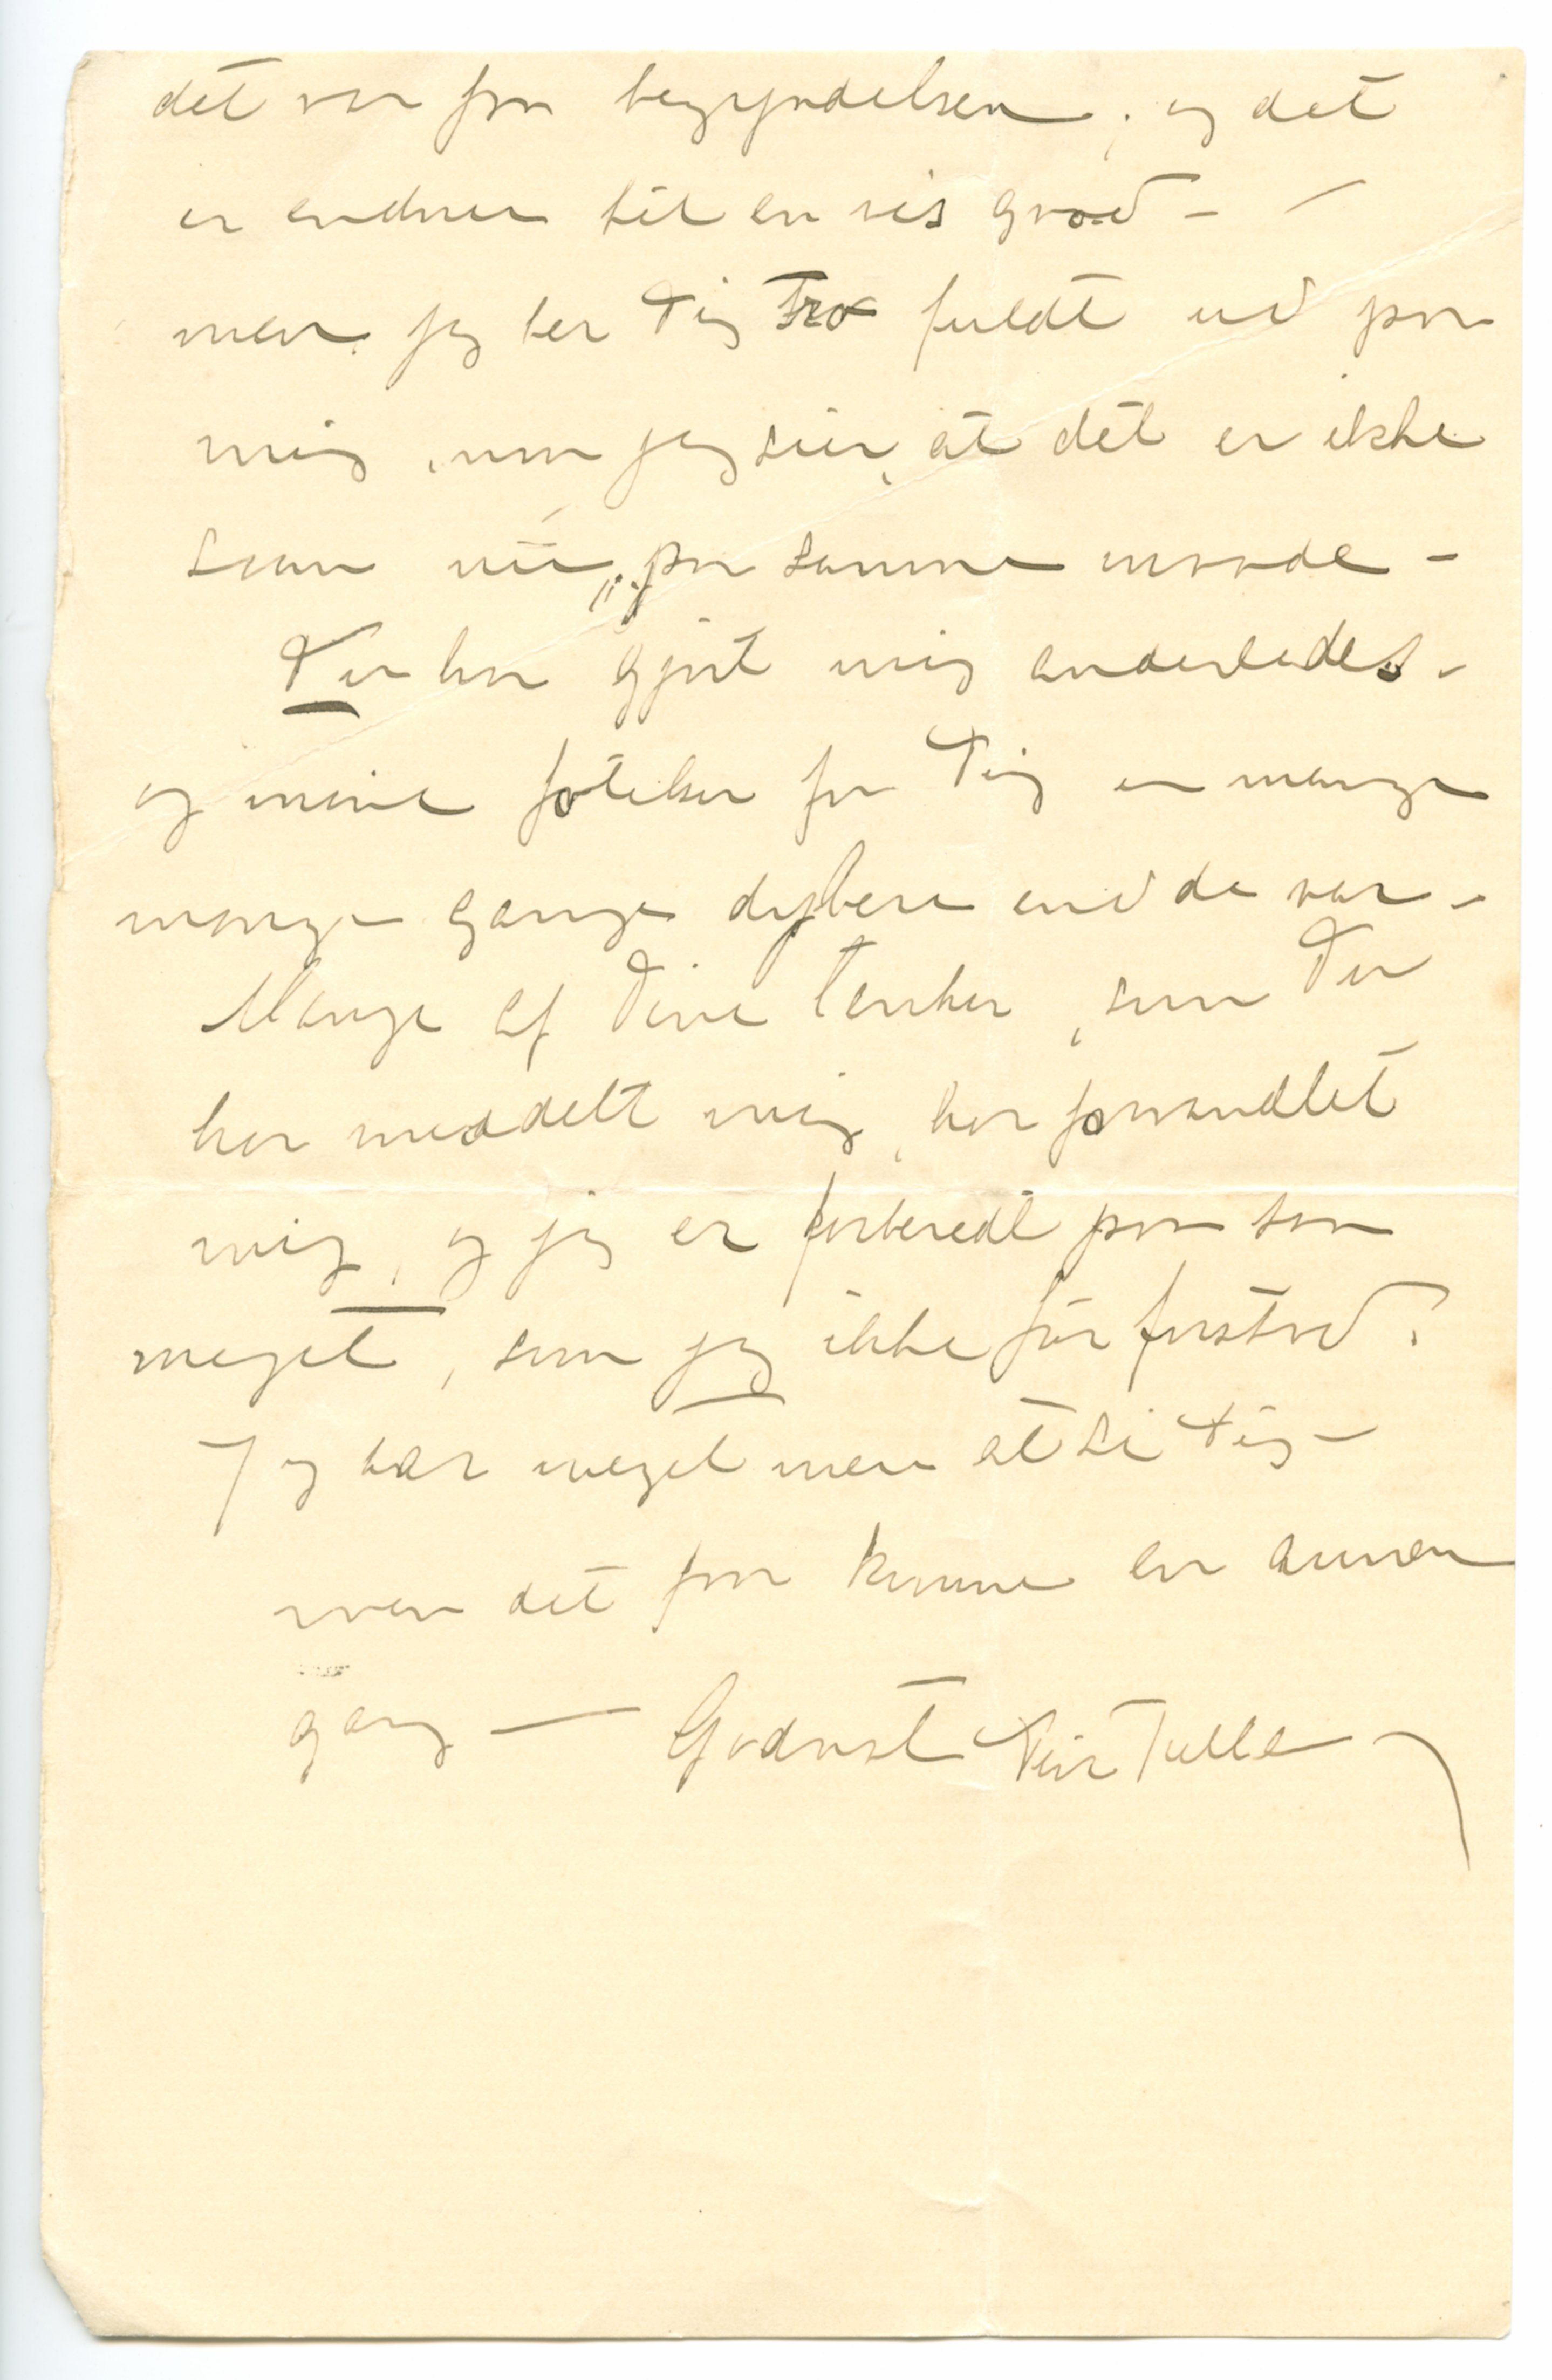 det var fra begyndelsen, og det
er endnu til en vis grad -
men jeg ber Dig tro fuldt ud paa
mig, naar jeg sier, at det er ikke
saan nu, paa samme maade -
Du har gjort mig anderledes -
og mine følelser for Dig er mange
mange gange dybere end de var -
Mange af Dine tanker, som Du
har meddelt mig, har forvandlet
mig, og jeg er forberedt paa saa
meget, som jeg ikke før forstod.
Jeg har meget mere at si Dig -
men det faar komme en annen
gang - Godnat Din Tulla